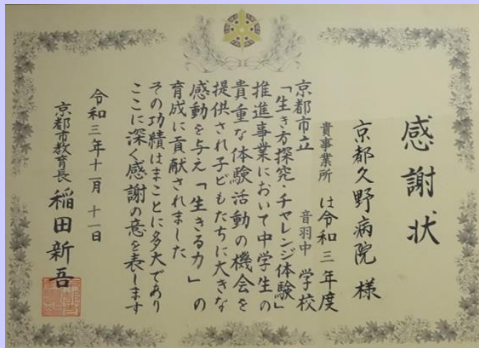 感謝状
京都久野病院 様
貴事業所 は令和三年度
京都市立 音羽中 学校
「生き方探究・チャレンジ体験」
推進事業において中学生の
貴重な体験活動の機会を
提供され子どもたちに大きな
感動を与え「生きる力」の
育成に貢献されました
その功績はまことに多大であり
ここに深く感謝の意を表します
令和三年十一月 十一日
京都市教育長 稲田新吾